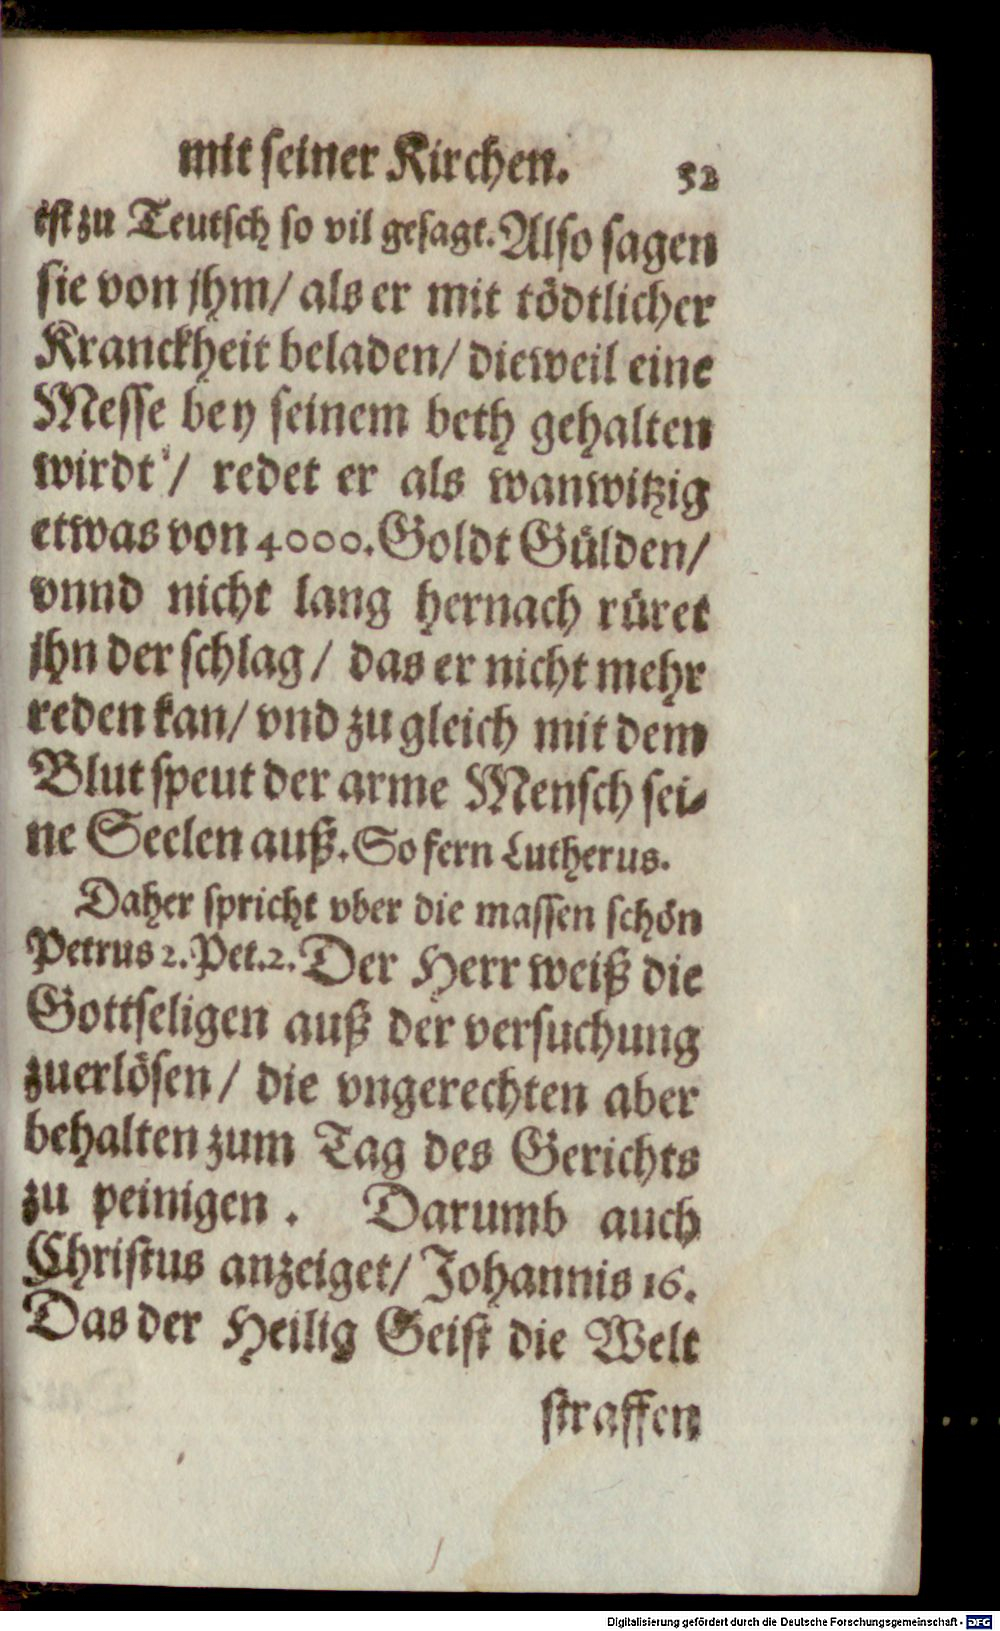 mit seiner Kirchen. 52
ist zu Teutsch so vil gesagt. Also sagen
sie von jhm/ als er mit tödtlicher
Kranckheit beladen/ dieweil eine
Messe bey seinem beth gehalten
wirdt/ redet er als wanwitzig
etwas von 4000. Goldt Gülden/
vnnd nicht lang hernach rüret
jhn der schlag/ das er nicht mehr
reden kan/ vnd zu gleich mit dem
Blut speut der arme Mensch sei-
ne Seelen auß. So fern Lutherus.
Daher spricht vber die massen schön
Petrus 2. Pet. 2. Der Herr weiß die
Gottseligen auß der versuchung
zuerlösen/ die vngerechten aber
behalten zum Tag des Gerichts
zu peinigen. Darumb auch
Christus anzeiget/ Johannis 16.
Das der Heilig Geist die Welt
straffen
Digitalisierung gefördert durch die Deutsche Forschungsgemeinschaft - DFG